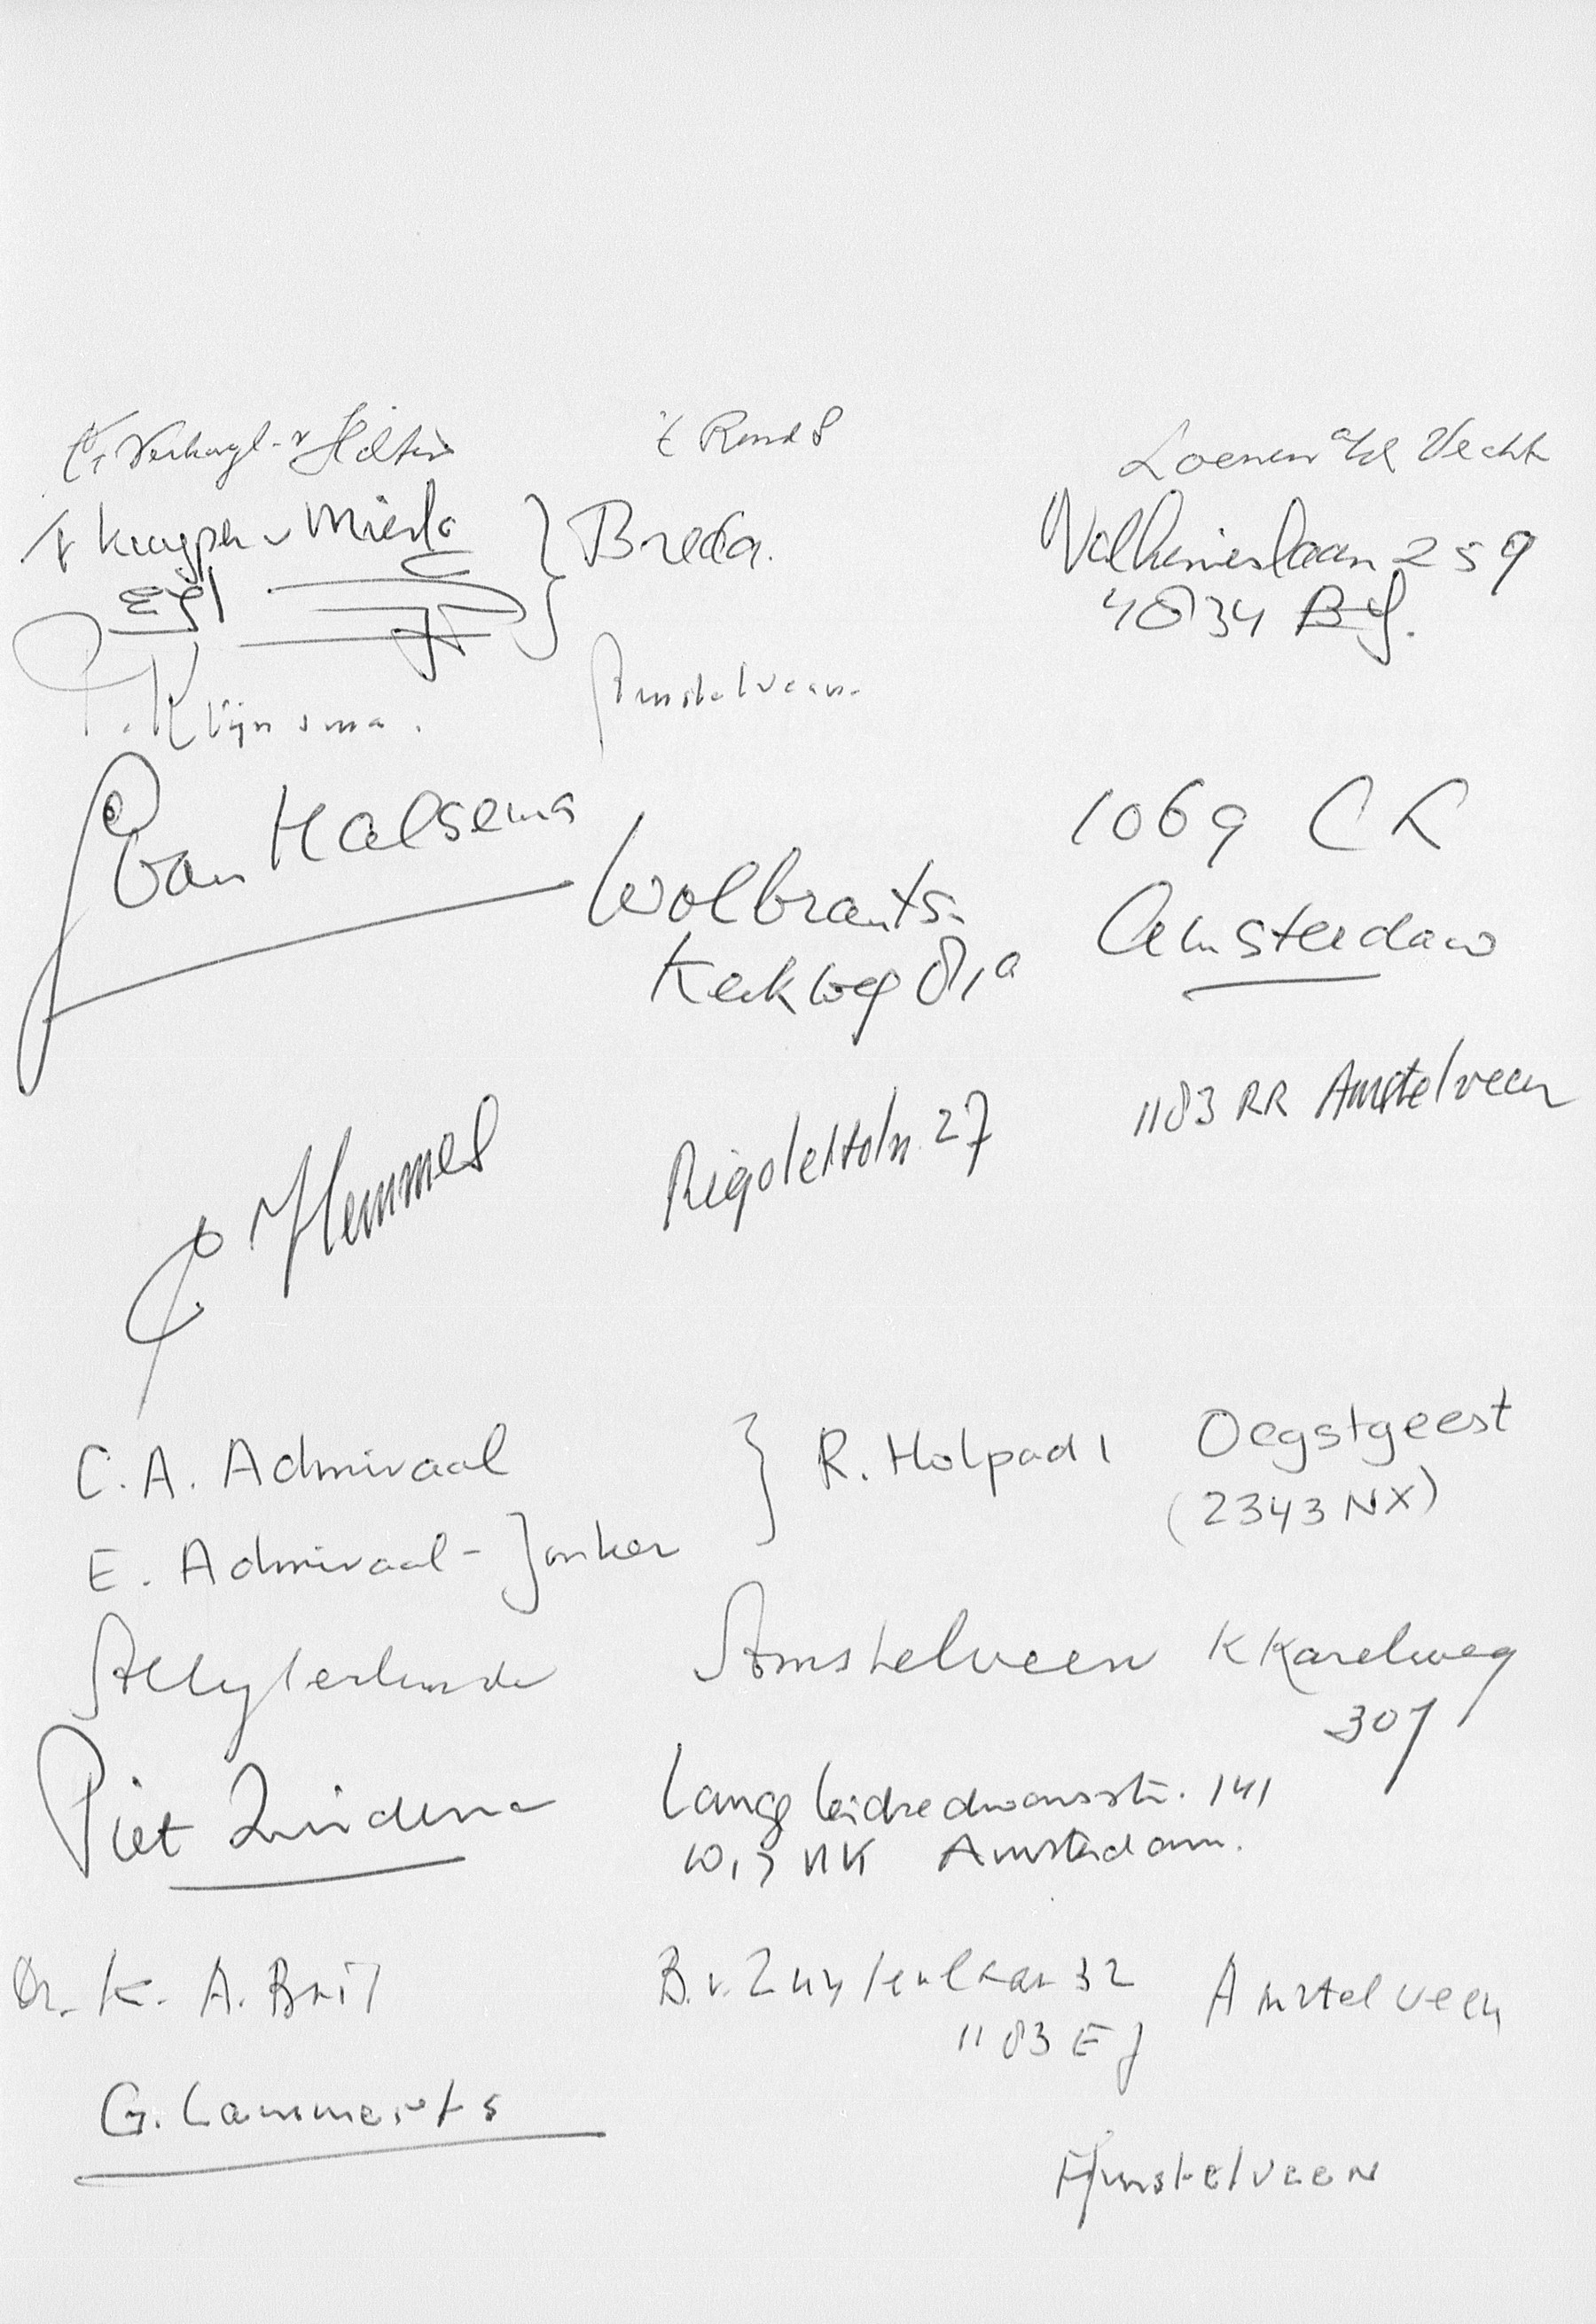 't Rond 8 Loenen a/d Vecht
Kuyper v Mierlo } Breda. Valkenierslaan 259
4834
P. Klijnsma. Amstelveen.
van Halsema 1069 CK
Wolbrants- Amsterdam
Kerkweg 81a
Hemmes Rigolettoln 27 1183 RR Amstelveen
C.A. Admiraal } R. Holpad 1 Oegstgeest
(2343 NX)
E. Admiraal-Jonker
Amstelveen K Karelweg
307
Piet Lange Leidsedwarsstr. 141
1017 NK Amsterdam.
Dr. K. A. Bril B.v. Zuylenlaan 32 Amstelveen
1183 EJ
G. Lammerts
Amstelveen